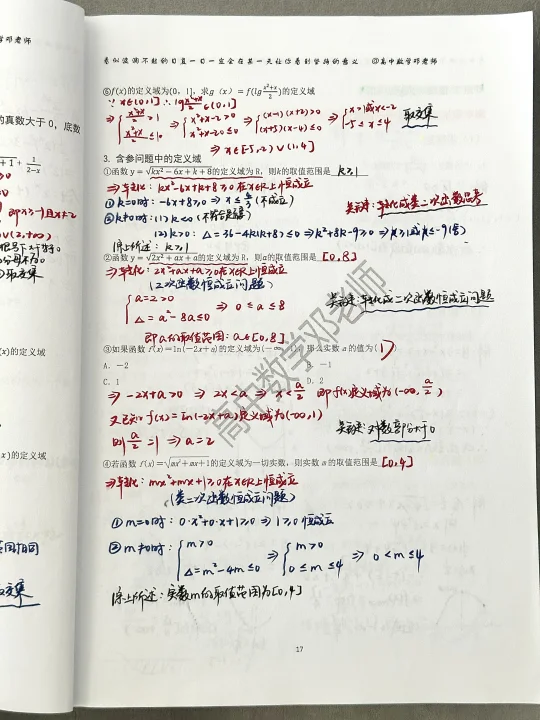 学邓老师
看似波澜不惊的日复一日一定会在某一天让你看到坚持的意义 @高中数学邓老师
的真数大于 0,底数
⑥f(x)的定义域为(0, 1],求g(x) = f(lg (x²+x)/2)的定义域
∵ x∈(0,1] ∴ lg (x²+x)/2 ∈(0,1]
⇒ { (x²+x)/2 >1 (x²+x)/2 ≤10 ⇒ { x²+x-2>0 x²+x-20≤0 ⇒ { (x-1)(x+2)>0 (x+5)(x-4)≤0 ⇒ { x>1或x<-2 -5≤x≤4 取交集
⇒ x∈[-5,-2)∪(1,4]
3. 含参问题中的定义域
①函数 y = √(kx² − 6x + k + 8)的定义域为 R,则k的取值范围是 k≥1
⇒转化: kx²-6x+k+8≥0在x∈R上恒成立
①k=0时: -6x+8≥0 ⇒ x≤4/3 (不成立)
②k≠0时: (1) k<0 (不符合题意)
(2) k>0: Δ=36-4k(k+8)≤0 ⇒ k²+8k-9≥0 ⇒ k≥1或k≤-9(舍)
综上所述: k≥1
②函数 y = √(2x² + ax + a)的定义域为 R,则a的取值范围是 [0,8]
⇒转化: 2x²+ax+a≥0在x∈R上恒成立
(二次函数恒成立问题)
关键: 转化成二次函数恒成立问题
{ a=2>0 Δ=a²-8a≤0 ⇒ 0≤a≤8
即a的取值范围: a∈[0,8]
③如果函数 f(x) = ln(−2x + a)的定义域为(−∞, 1),那么实数 a 的值为( D )
A. −2 B. −1
C. 1 D. 2
⇒ -2x+a>0 ⇒ 2x<a ⇒ x<a/2 即f(x)定义域为(-∞, a/2)
又已知f(x)=ln(-2x+a)定义域为(-∞,1)
则 a/2=1 ⇒ a=2
关键: 对数真部分大于0
④若函数 f(x) = √(mx² + mx + 1)的定义域为一切实数,则实数 m 的取值范围是 [0,4]
⇒转化: mx²+mx+1≥0在x∈R上恒成立
(类二次函数恒成立问题)
①m=0时: 0·x²+0·x+1≥0 ⇒ 1≥0恒成立
②m≠0时: { m>0 Δ=m²-4m≤0 ⇒ { m>0 0≤m≤4 ⇒ 0<m≤4
综上所述: 实数m的取值范围为[0,4]
高中数学邓老师
17